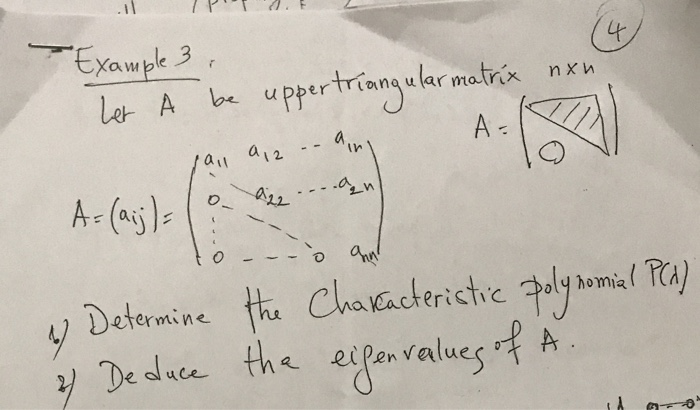 4
Example 3.
Let A be upper triangular matrix n×n
A =
0
a11 a12 -- a1n
0 a22 ---- a2n
A=(aij)=
0 --- 0 ann
1) Determine the Characteristic polynomial P(λ)
2) Deduce the eigenvalues of A.